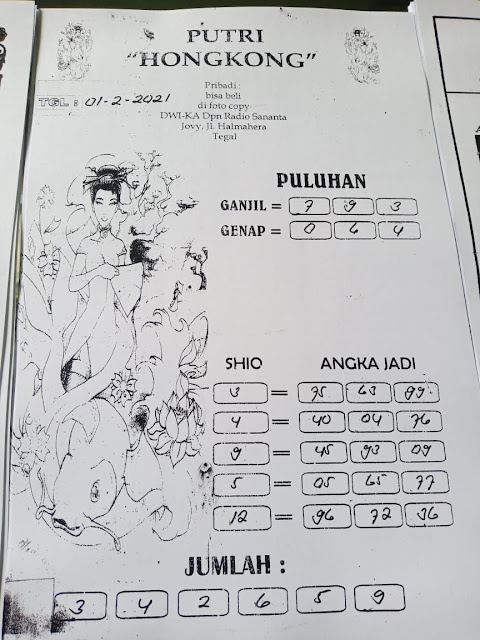 PUTRI
"HONGKONG"
Pribadi :
bisa beli
di foto copy
DWI-KA Dpn Radio Sananta
Jovy, Jl. Halmahera
Tegal
TGL : 01-2-2021
PULUHAN
GANJIL = 7 9 3
GENAP = 0 6 4
SHIO ANGKA JADI
3 = 75 63 99
4 = 40 04 76
9 = 45 93 09
5 = 05 65 77
12 = 96 72 36
JUMLAH :
3 4 2 6 5 9